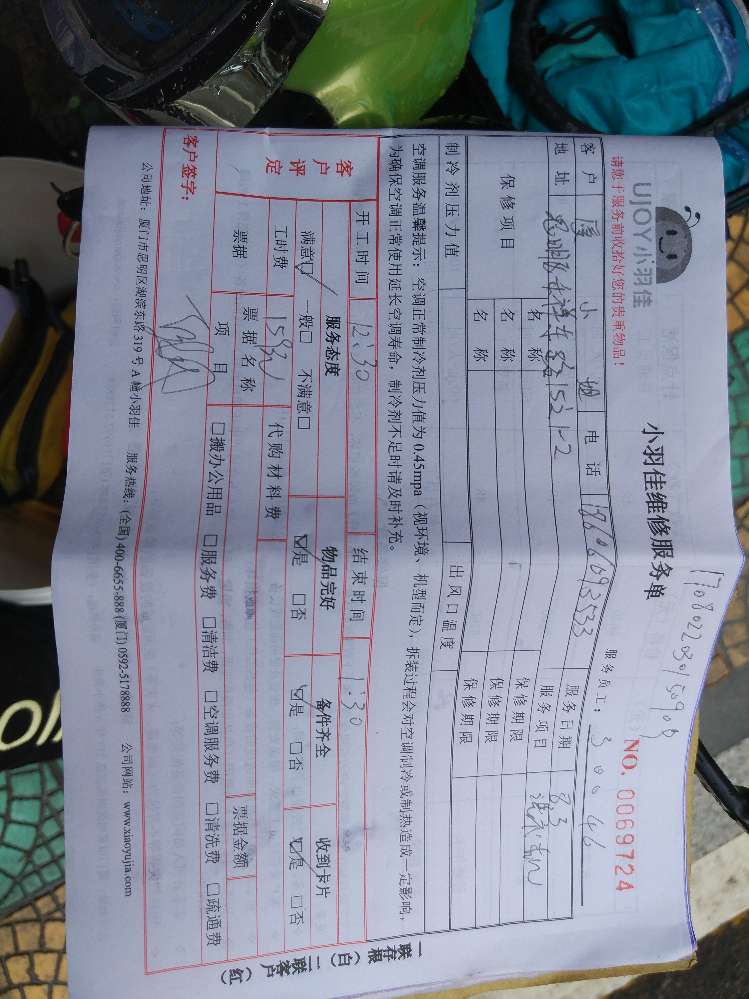 UJOY小羽佳
请您于服务前收拾好您的贵重物品!
小羽佳维修服务单
NO. 0069724
服务员工: 30046
客户 小姐 电话 服务日期 8.3
地址 服务项目
保修项目 名称 保修期限
名称 保修期限
名称 保修期限
制冷剂压力值 出风口温度
空调服务温馨提示:空调正常制冷剂压力值为0.45mpa(视环境、机型而定),拆装过程会对空调制冷或制热造成一定影响,
为确保空调正常使用延长空调寿命,制冷剂不足时请及时补充。
开工时间 12:30 结束时间 1:30
客户评定 服务态度 物品完好 备件齐全 收到卡片
满意☑ 一般□ 不满意□ ☑是 □否 ☑是 □否 ☑是 □否
工时费 159元 代购材料费
票据 票据名称 票据金额
项目 □搬办公用品 □服务费 □清洁费 □空调服务费 □清洗费 □疏通费
客户签字:
公司地址:厦门市思明区湖滨东路319号A幢小羽佳 服务热线:(全国) 400-6655-888 (厦门) 0592-5178888 公司网站:www.xiaoyujia.com
一联存根(白) 二联客户(红)